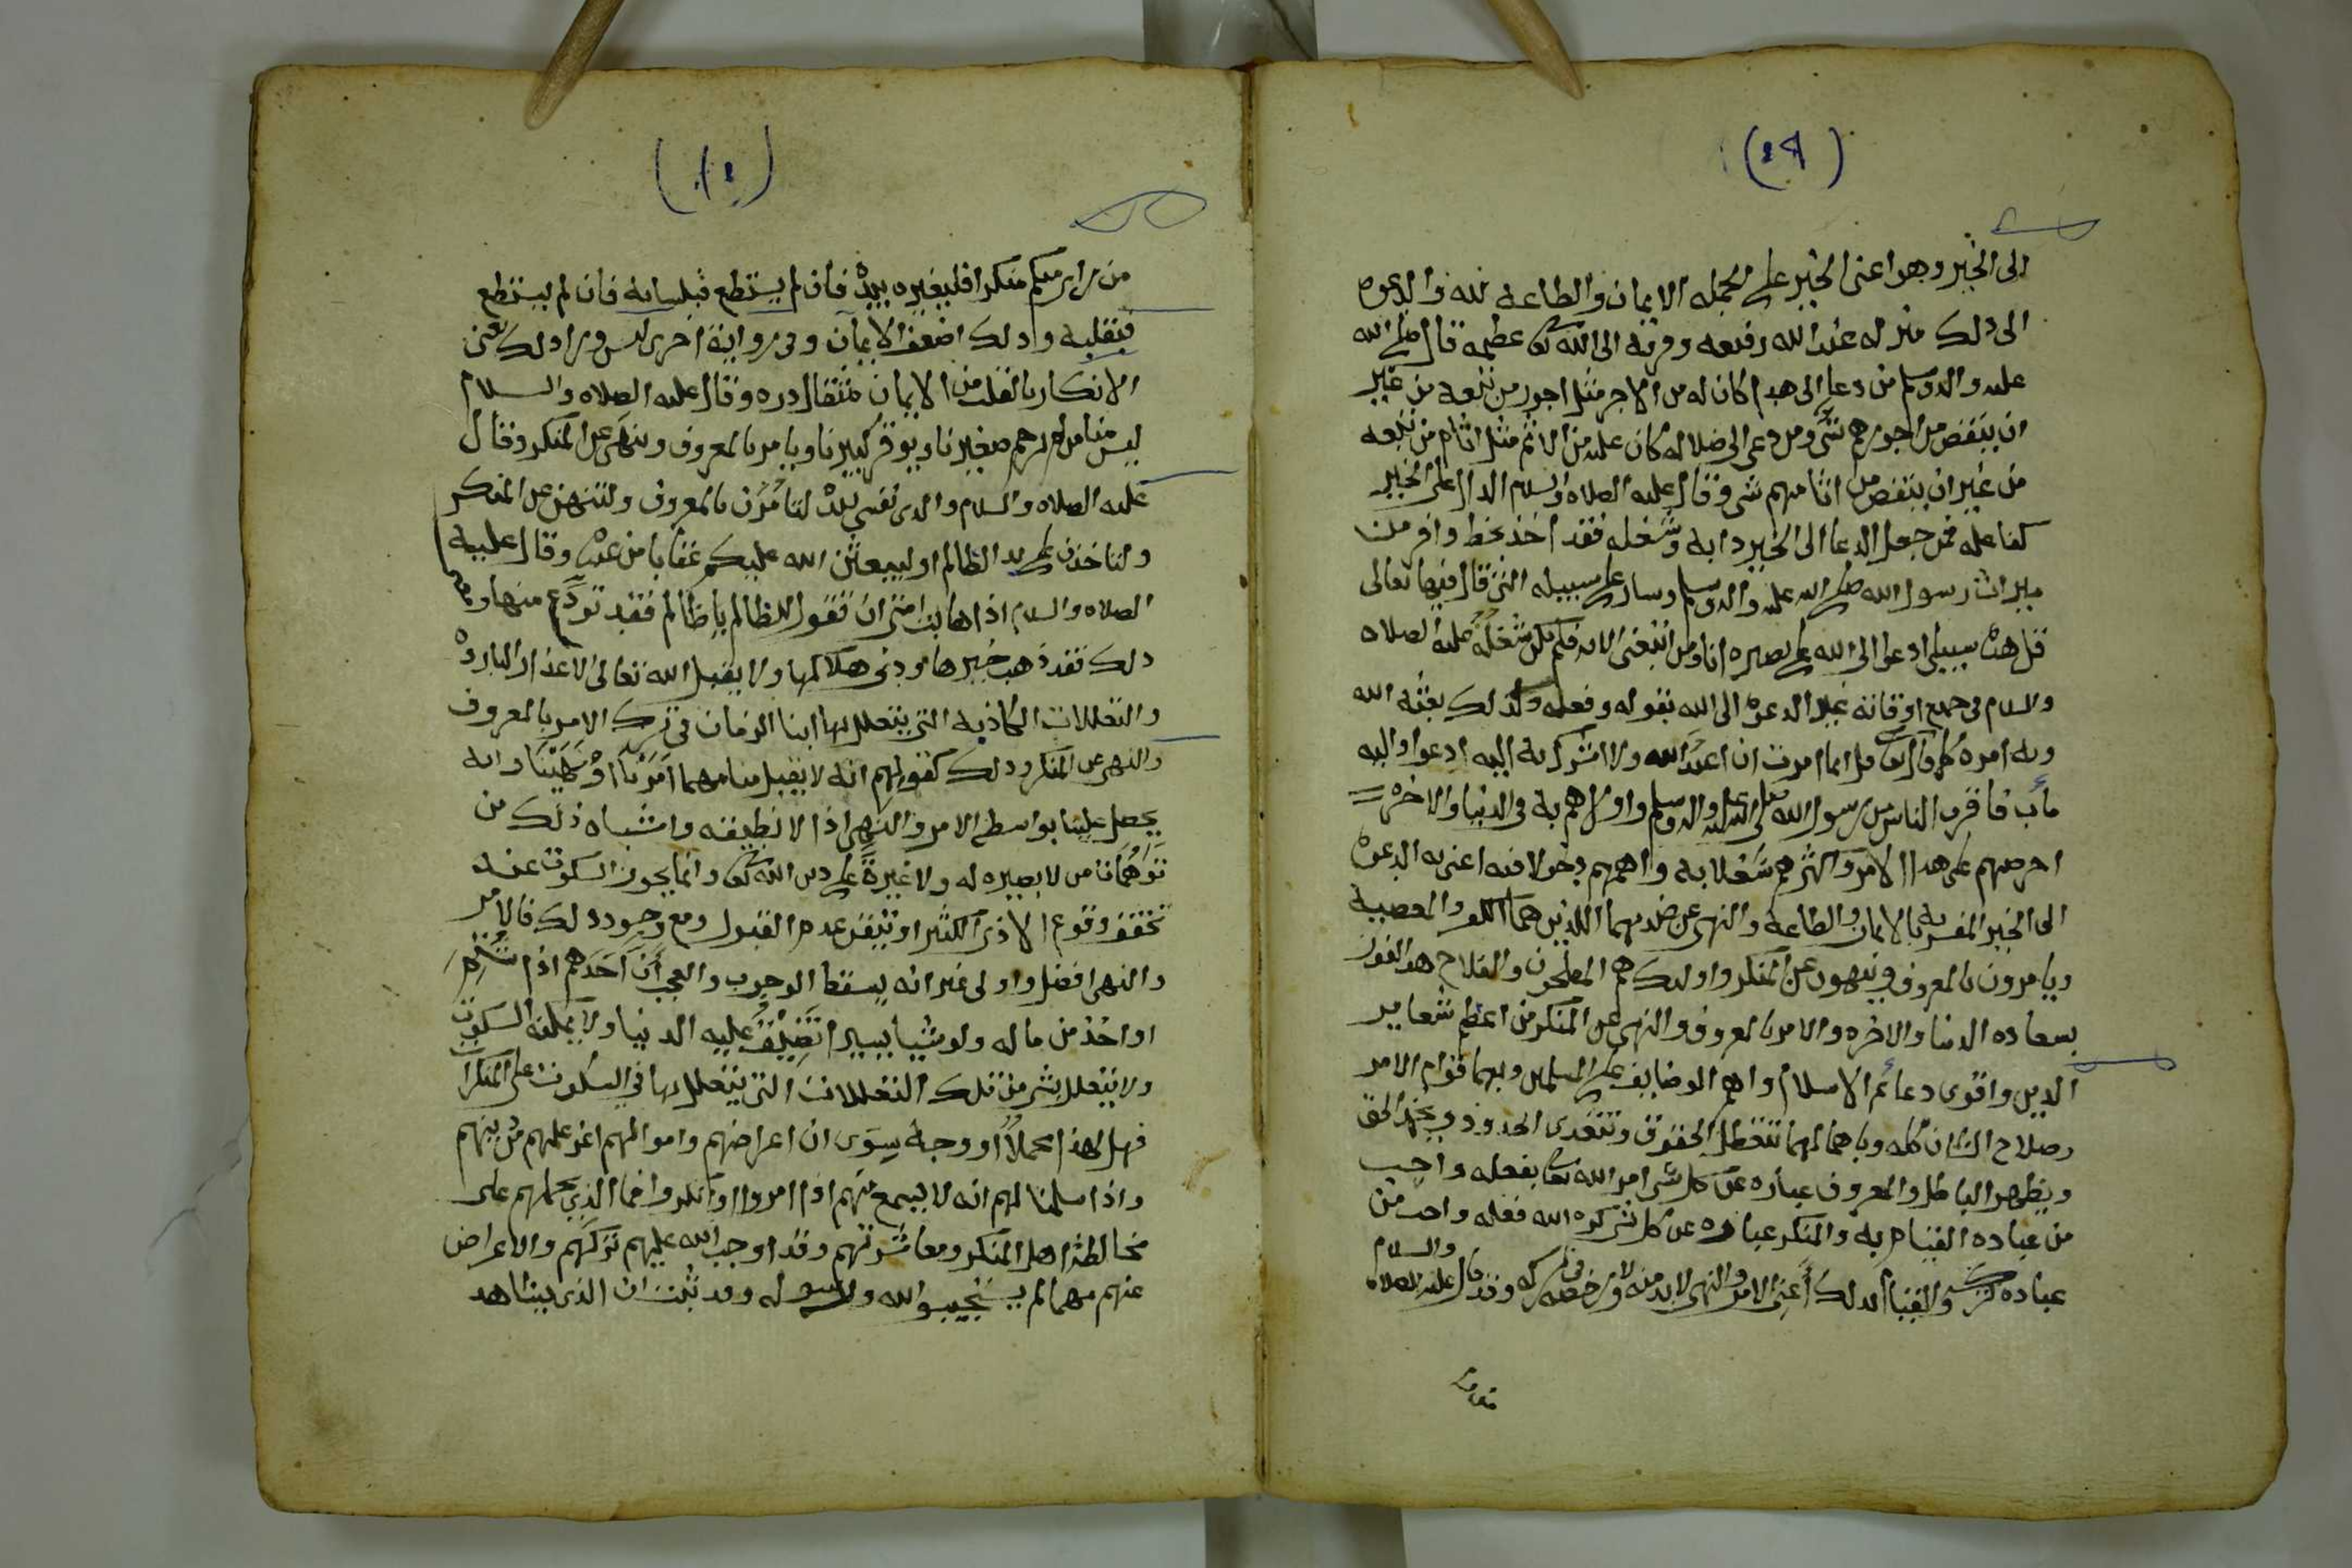 (٤٩)
الى الخير وهو اعنى الخير على الجمله الايمان والطاعة لله والدعوه
الى ذلك منزله عند الله رفيعه وقربه الى الله تعا عظيمه قال صلى الله
عليه واله وسلم من دعا الى هدا كان له من الاجر مثل اجور من تبعه من غير
ان ينقص من اجورهم شي ومن دعى الى ضلاله كان عليه من الاثم مثل اثام من تبعه
من غير ان ينقص من اثامهم شي وقال عليه الصلاه والسلام الدال على الخير
كفاعله فمن جعل الدعا الى الخير دابه وشغله فقد اخذ بحظ وافر من
ميراث رسول الله صلى الله عليه واله وسلم وسار على سبيله التي قال فيها تعالى
قل هذه سبيلي ادعوا الى الله على بصيره انا ومن اتبعني الايه فلم يكن شغله عليه الصلاه
والسلام في جميع اوقاته غير الدعوه الى الله بقوله وفعله ولذلك بعثه الله
وبه امره كما قال تعا قل انما امرت ان اعبد الله ولا اشرك به اليه ادعوا واليه
مأب فاقرب الناس من رسول الله صلى الله عليه واله وسلم واولاهم به في الدنيا والاخره
احرصهم على هذا الامر واكثرهم شغلا به واهمهم دخولا فيه اعني به الدعوه
الى الخير المفسر به بالايمان والطاعة والنهي عن ضديهما اللذين هما الكفر والمعصية
ويامرون بالمعروف وينهون عن المنكر واولئك هم المفلحون والفلاح هو الفوز
بسعاده الدنيا والاخره والامر بالمعروف والنهي عن المنكر من اعظم شعاير
الدين واقوى دعائم الاسلام واهم الوضايف على المسلمين وبهما قوام الامر
وصلاح الشان كله وباهمالهما تتعطل الحقوق وتتعدى الحدود ويخفى الحق
ويظهر الباطل والمعروف عباره عن كل شي امر الله تعا بفعله واحب
من عباده القيام به والمنكر عباره عن كل شي كره الله فعله واحب من
عباده تركه والقيام بذلك أعني الامر والنهي لابد منه ولا رخصه في تركه وقد قال عليه الصلاه
والسلام
من راى منكم منكرا فليغيره بيده فان لم يستطع فبلسانه فان لم يستطع
فبقلبه وذلك اضعف الايمان وفي رواية اخرى ليس ورا ذلك يعني
الانكار بالقلب من الايمان مثقال ذره وقال عليه الصلاه والسلام
ليس منا من لم يرحم صغيرنا ويوقر كبيرنا ويامر بالمعروف وينهى عن المنكر وقال
عليه الصلاه والسلام والدى نفسي بيده لتامرن بالمعروف ولتنهن عن المنكر
ولتاخذن على يد الظالم او ليبعثن الله عليكم عقابا من عنده وقال عليه
الصلاه والسلام اذا هابت امتي ان تقول للظالم يا ظالم فقد تودع منها
ذلك فقد ذهب خيرها ودنى هلاكها ولا يقبل الله تعالى الاعذار البارده
والتعللات الكاذبه التي يتعلل بها ابنا الزمان في ترك الامر بالمعروف
والنهي عن المنكر وذلك كقولهم انه لا يقبل منا مهما امرنا او نهينا وانه
يحصل علينا بواسطة الامر والنهي اذا لا نطيقه واشباه ذلك من
توهمات من لا بصيره له ولا غيرة على دين الله تعا وانما يجوز السكوت عنه
تحقق وقوع الاذى الكثير او تيقن عدم القبول ومع وجود ذلك فالامر
والنهي افضل واولى غير انه يسقط الوجوب والعجب أن احدهم اذا شتم
او اخذ من ماله ولو شيا يسيرا تضيق عليه الدنيا ولا يمكنه السكوت
ولا يتعلل بشي من تلك التعللات التي يتعلل بها في السكوت على المنكرات
فهل لهذا محملا او وجه سوى ان اعراضهم واموالهم اعز عليهم من دينهم
واذا سلمنا لهم انه لا يسمع منهم اذا امروا او انكروا فما الذي يحملهم على
مخالطة اهل المنكر ومعاشرتهم وقد اوجب الله عليهم تركهم والاعراض
عنهم مهما لم يستجيبوا لله ولرسوله وقد ثبت ان الذي يشاهد